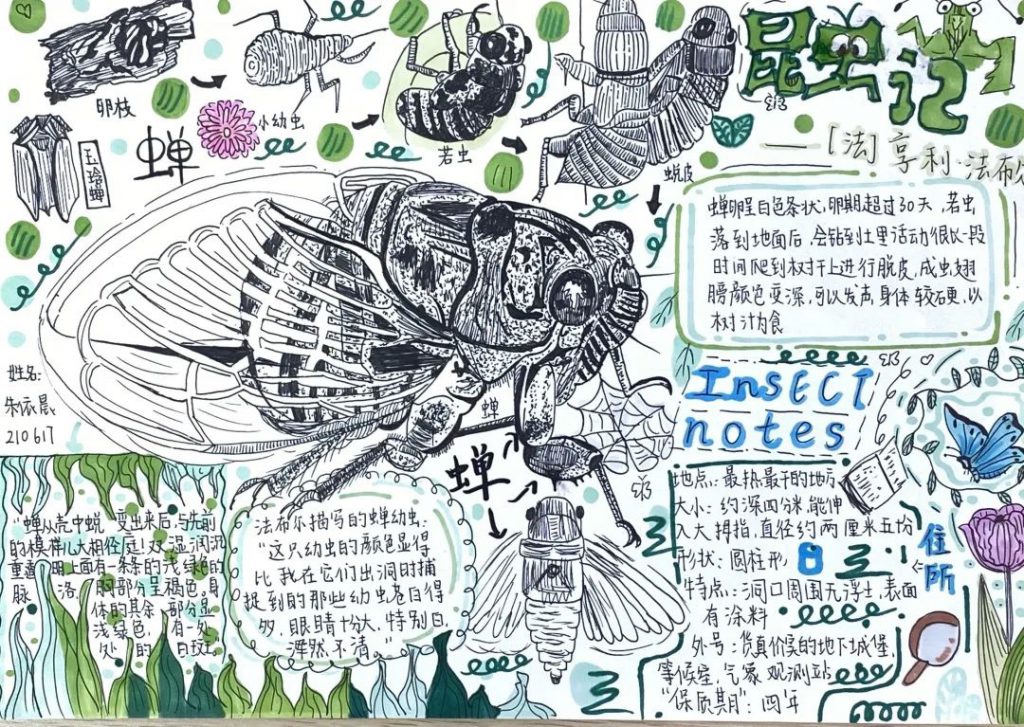 昆虫记
[法]亨利·法布
卵枝
小幼虫
若虫
蜕皮
玉玲蝉
蝉
蝉卵呈白色条状,卵期超过30天,若虫
落到地面后,会钻到土里活动很长一段
时间爬到树干上进行脱皮,成虫翅
膀颜色变深,可以发声,身体较硬,以
树汁为食
InsECT
notes
姓名:
朱宸晨
210617
蝉
蝉
"蝉从壳中蜕变出来后,与先前
的模样儿大相径庭!双湿润沉
重透明上面有一条条的浅绿色的
脉洛。胸部分呈褐色。身
体的其余部分呈
浅绿色,有一处
处的白斑。
法布尔描写的蝉幼虫:
"这只幼虫的颜色显得
比我在它们出洞时捕
捉到的那些幼虫苍白得
多,眼睛十分大,特别白,
浑然,不清。"
地点:最热最干的地方
大小:约深四分米,能伸
入大拇指,直径约两厘米五份
形状:圆柱形
特点:洞口周围无浮土,表面
有涂料
外号:货真价实的地下城堡,
等候室,气象观测站
"保质期":四年
住所